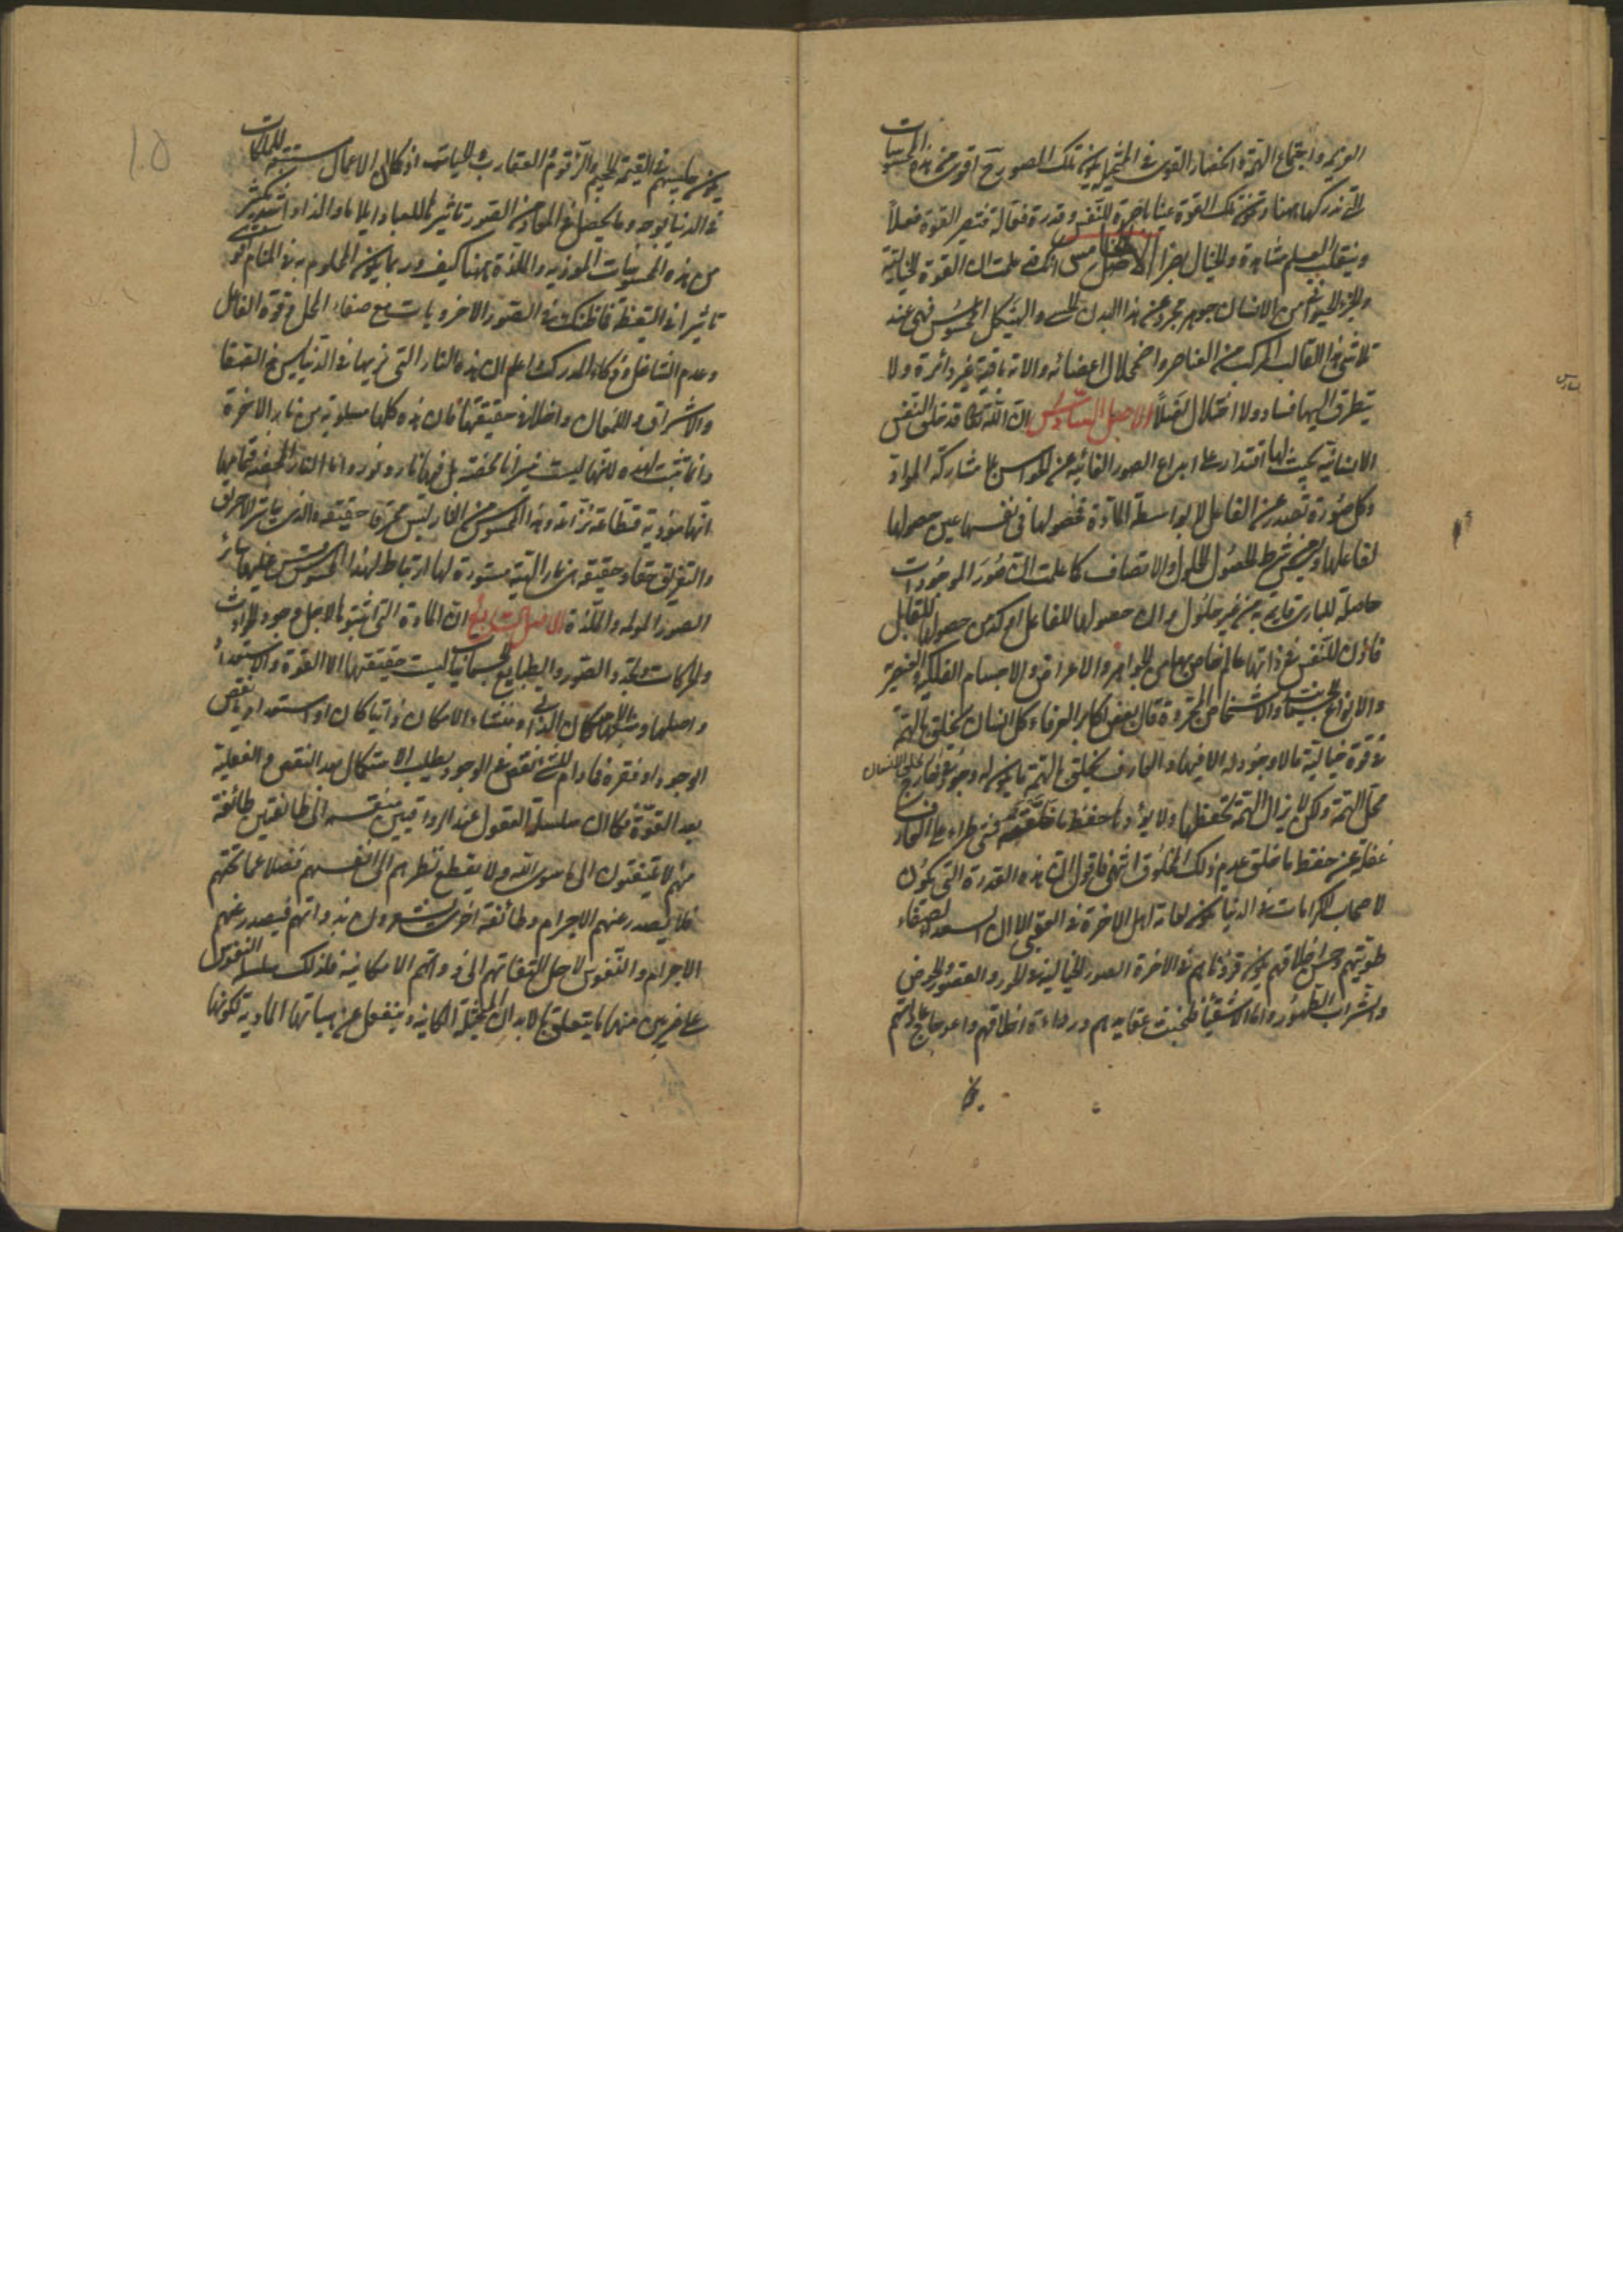 العزيمة واجتماع الهمة وانحصار القوى في المتخيلة يكون تلك الصور ح اقوى من هذه المحسوسات
التي ندركها هاهنا وتكون تلك القوة عينا باصرة للنفس وقدرة فعالة فتصير القوة فعلاً
وينقلب العلم مشاهدة والخيال بصرا الاصل الخامس انك قد علمت ان القوة الخيالية
والجزء الحيواني من الانسان جوهر مجرد عن هذا البدن الحسي والهيكل المحسوس فهي عند
تلاشي هذا القالب المركب من العناصر واضمحلال اعضائه والاته باقية غير داثرة ولا
يتطرق اليها فساد ولا اختلال اصلاً الاصل السادس ان الله تعالى قد خلق النفس
الانسانية بحيث لها اقتدار على ابداع الصور الغائبة عن الحواس بلا مشاركة المواد
وكل صورة تصدر عن الفاعل لا بواسطة المادة فحصولها في نفسها عين حصولها
لفاعلها وليس من شرط الحصول الحلول والاتصاف كما علمت ان صور الموجودات
حاصلة للباري قائمة به من غير حلول وان حصولها للفاعل اوكد من حصولها للقابل
فاذن للنفس في ذاتها عالم خاص بها من الجواهر والاعراض والاجسام الفلكية والعنصرية
والانواع الجسمانية والاشخاص المجردة قال بعض اكابر العرفاء كل انسان يخلق بالهمة
في قوة خياله ما لا وجود له الا فيها والعارف يخلق بالهمة ما يكون له وجود من خارج
محل الهمة ولكن لا يزال الهمة تحفظها ولا يؤودها حفظ ما خلقته فمتى طرا على العارف
غفلة عن حفظ ما خلق عدم ذلك المخلوق انتهى فاقول ان هذه القدرة التي تكون
لاصحاب الكرامات في الدنيا يكون لعامة اهل الاخرة في العقبى الا ان السعداء لصفاء
طويتهم وحسن اخلاقهم يكون قرناؤهم في الاخرة الصور الخيالية والحور والقصور والحوض
والشراب الطهور واما الاشقياء فلخبث عقايدهم ورداءة اخلاقهم واعوجاج عاداتهم
يكون
يكون جليسهم في القيمة الجحيم والزقوم والعقارب والحيات اذ كما ان الاعمال مستتبعة للملكات
في الدنيا بوجه وما يحصل في المعاد من الصور تأثيرها للعباد ايلاما والذاذا اشد بكثير
من هذه المحسوسات الموذية واللذيذة هاهنا كيف وربما يكون المحلوم به في المنام اقوى
تاثيرا في اليقظة فما ظنك في الصور الاخروية مع صفاء المحل وقوة الفاعل
وعدم الشاغل وذكاء المدرك واعلم ان هذه النار التي نريها في الدنيا ليس من الصفا
والاشراق واللمعان داخلا في حقيقتها فان هذه كلها مسلوبة من نار الاخرة
وانما تثبت لهذه لانها ليست نيرانا محضة بل فيها نار ونور واما النار المحضة فمن شانها
انها موذية قطاعة نزاعة وهذا المحسوس من النار ليس محرقا حقيقة والذي يباشر الاحراق
والتفريق حقا وحقيقة هي نار الهية مستورة لها ارتباط لهذا المحسوس
الصور المولمة واللذيذة الاصل السابع ان المادة التي اثبتوها لاجل وجود الحوادث
والحركات وتجدد الصور والطبايع الجسمانية ليست حقيقتها الا القوة والاستعداد
واصلها ومنشاؤها الامكان الذاتي ومنشاء الامكان ذاتيا كان او استعداديا نقص
الوجود وفقره فما دام للشيء نقص في الوجود يطلب الاستكمال بعد النقص والفعلية
بعد القوة فكان سلسلة العقول عند الرواقيين منقسمة الى طائفتين طائفة
منهم لا يلتفتون الى ما سوى الله ولا يقطع نظرهم الى انفسهم فضلا عما تحتهم
فلا يصدر عنهم الاجرام وطائفة اخرى يشعرون بذواتهم فيصدر عنهم
الاجرام والنفوس لاجل التفاتهم الى ذواتهم الامكانية فلذلك سلسلة النفوس
على ضربين منها ما يتعلق بالابدان المتخيلة الكاينة وينفعل عن هيئاتها المادية لكونها